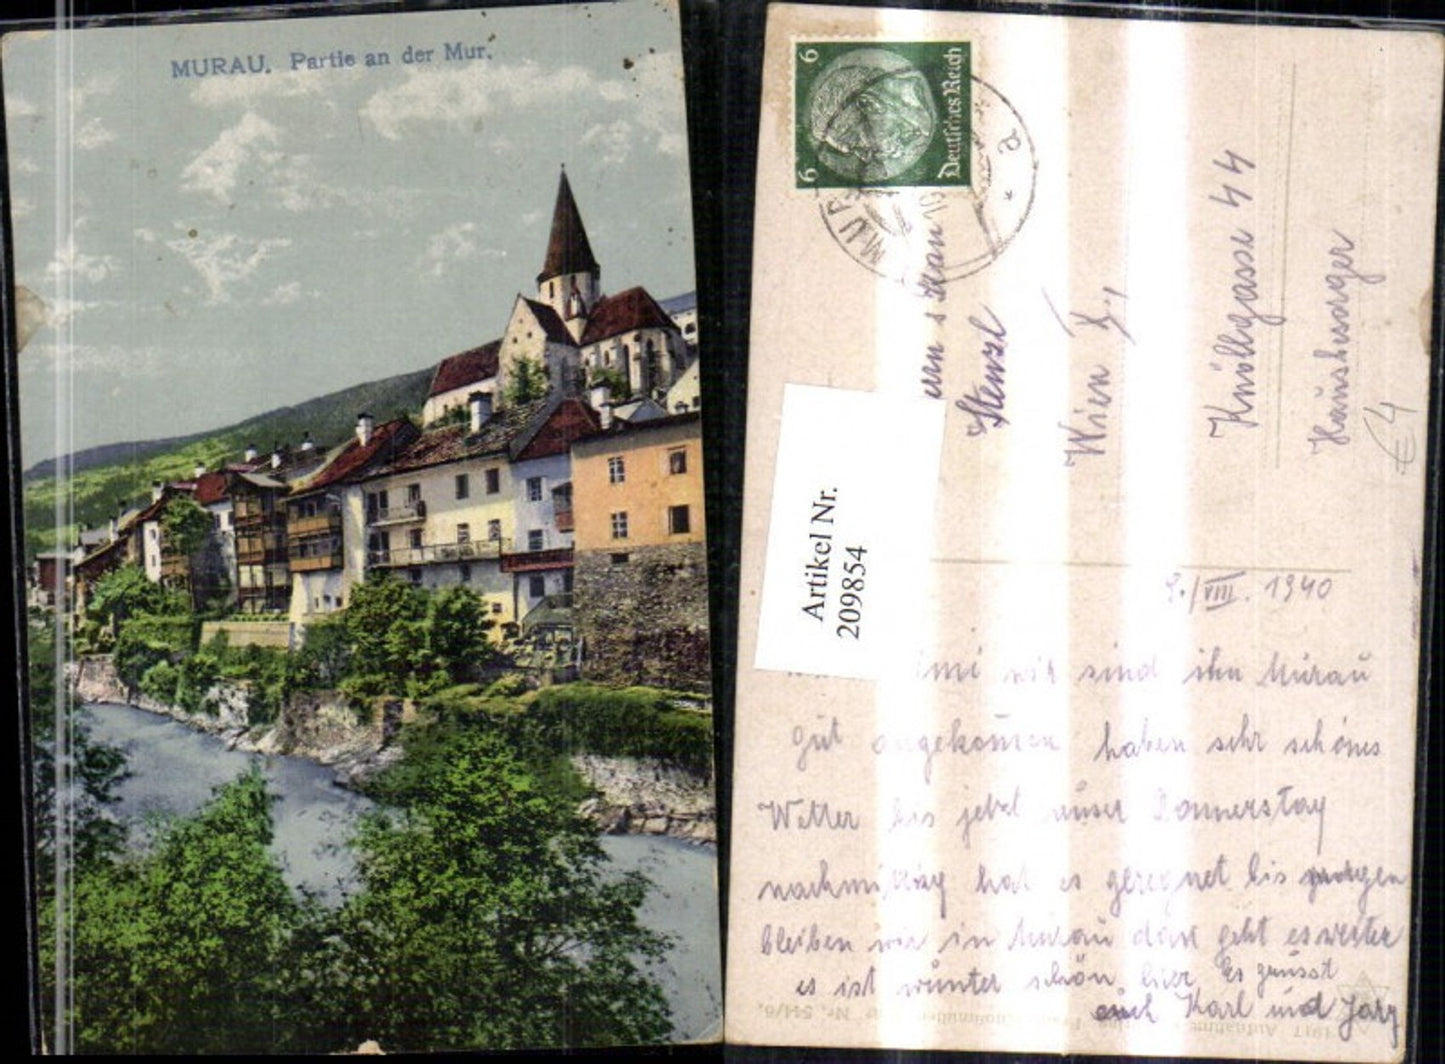 MURAU. Partie an der Mur.
6 6
Deutsches Reich
MUR
a
Stenzl
Wien X.,
Knöllgasse 44
Hausbesorger
€ 4
Artikel Nr.
209854
9./VIII. 1940
wir sind ihn Murau
gut angekommen haben sehr schönes
Wetter bis jetzt nur Donnerstag
nachmittag hat es geregnet bis morgen
bleiben wir in Murau dan geht es weiter
es ist wunter schön hier Es grüsst
euch Karl und
1917 Aufnahme Nr. 544/6.